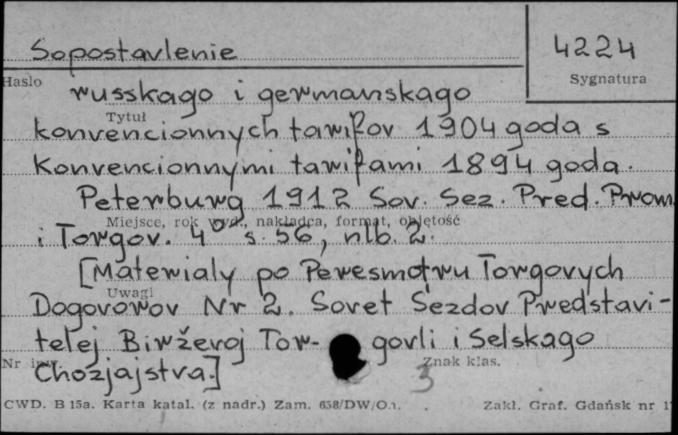 Sopostavlenie
4224
Hasło
Sygnatura
russkago i germanskago
Tytuł
konvencionnych tarifov 1904 goda s
konvencionnymi tarifami 1894 goda.
Peterburg 1912 Sov. Sez. Pred. Prom
Miejsce, rok wyd., nakładca, format, objętość
i Torgov. 4° s. 56, nlb. 2.
[Materialy po Peresmotru Torgovych
Uwagi
Dogovorov Nr 2. Sovet Sezdov Predstavi-
telej Birževoj Tor- govli i Selskago
Nr inw. Znak klas.
Chozjajstva]
3
CWD. B 15a. Karta katal. (z nadr.) Zam. 658/DW/O.1. Zakł. Graf. Gdańsk nr 1